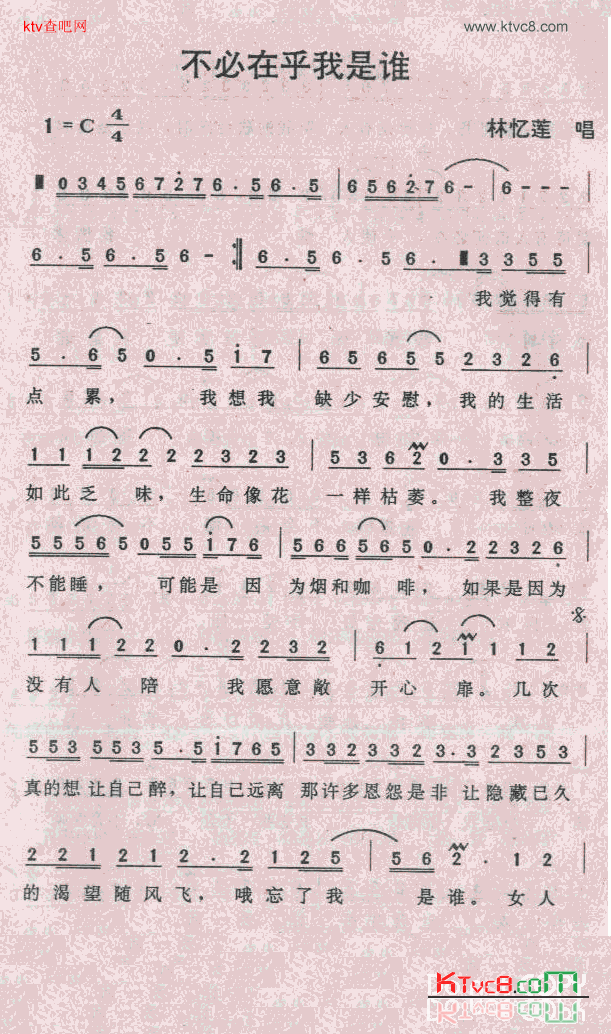 ktv查吧网 www.ktvc8.com
不必在乎我是谁
1=C 4/4 林忆莲 唱
0 3 4 5 6 7 2 7 6 . 5 6 . 5 | 6 5 6 2 7 6 - | 6 - - - |
6 . 5 6 . 5 6 - :| 6 . 5 6 . 5 6 . 3 3 5 5
我觉得有
5 . 6 5 0 . 5 i 7 | 6 5 6 5 5 2 3 2 6 |
点 累， 我想我 缺少安慰，我的生活
1 1 1 2 2 2 2 3 2 3 | 5 3 6 2 0 . 3 3 5 |
如此乏 味，生命像花 一样枯萎。 我整夜
5 5 5 6 5 0 5 5 i 7 6 | 5 6 6 5 6 5 0 . 2 2 3 2 6 |
不能睡， 可能是 因 为烟和咖 啡，如果是因为
1 1 1 2 2 0 . 2 2 3 2 | 6 1 2 1 1 1 2 |
没有人 陪 我愿意敞 开心 扉。几次
5 5 3 5 5 3 5 . 5 i 7 6 5 | 3 3 2 3 3 2 3 . 3 2 3 5 3 |
真的想让自己醉，让自己远离 那许多恩怨是非 让隐藏已久
2 2 1 2 1 2 . 2 2 1 2 5 | 5 6 2 . 1 2 |
的渴望随风飞，哦忘了我 是谁。女人
KTvc8.com